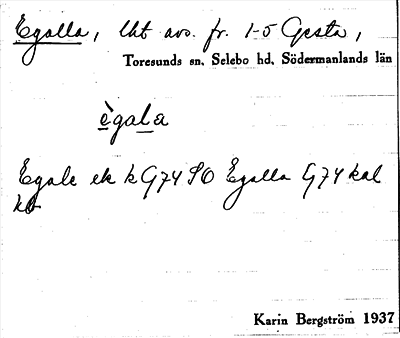 Egalla, lht avs. fr. 1-5 Gesta,
Toresunds sn. Selebo hd. Södermanlands län
ègala
Egale ek k G74 SO Egalla G74 kal
Karin Bergström 1937